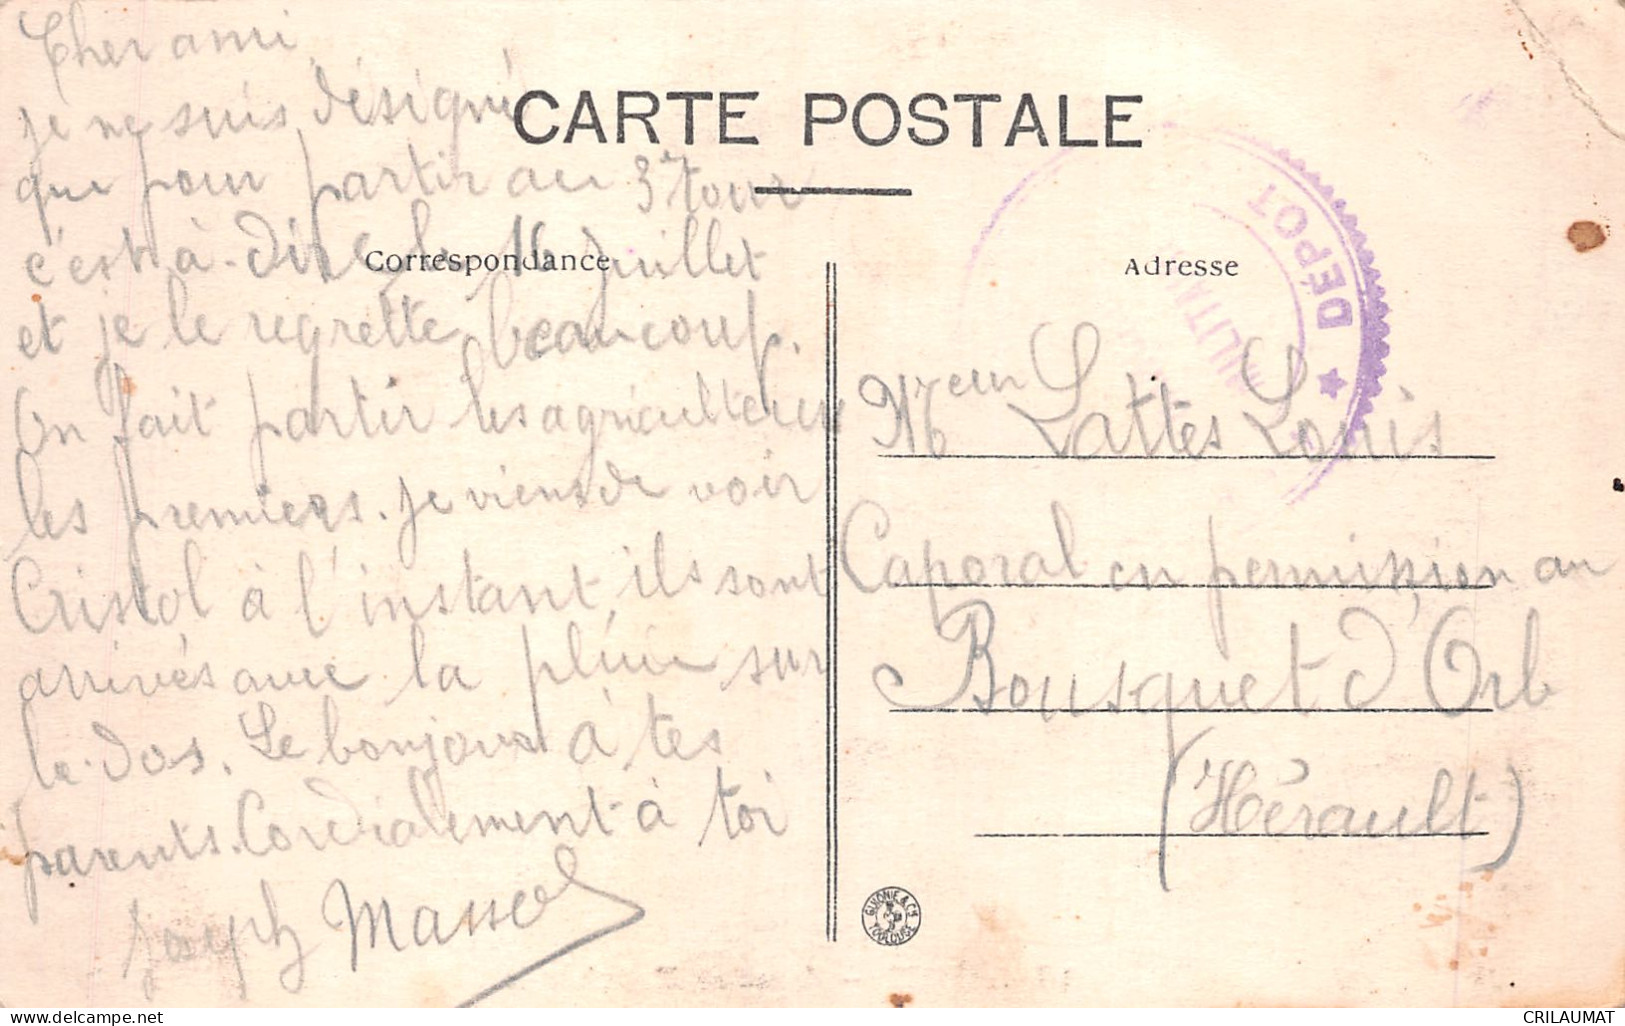 CARTE POSTALE
Correspondance
Cher ami
je ne suis désigné
que pour partir au 3e tour
c'est à-dire le 16 Juillet
et je le regrette beaucoup.
On fait partir les agriculteurs
les premiers. Je viens de voir
Cristol à l'instant, ils sont
arrivés avec la pluie sur
le dos. Le bonjour à tes
parents. Cordialement à toi
Joseph Massol
Adresse
Lattes Louis
Caporal en permission au
Bousquet d'Orb
(Hérault)
★ DÉPOT
MILITAI
TOULOUSE
delcampe.net
CRILAUMAT